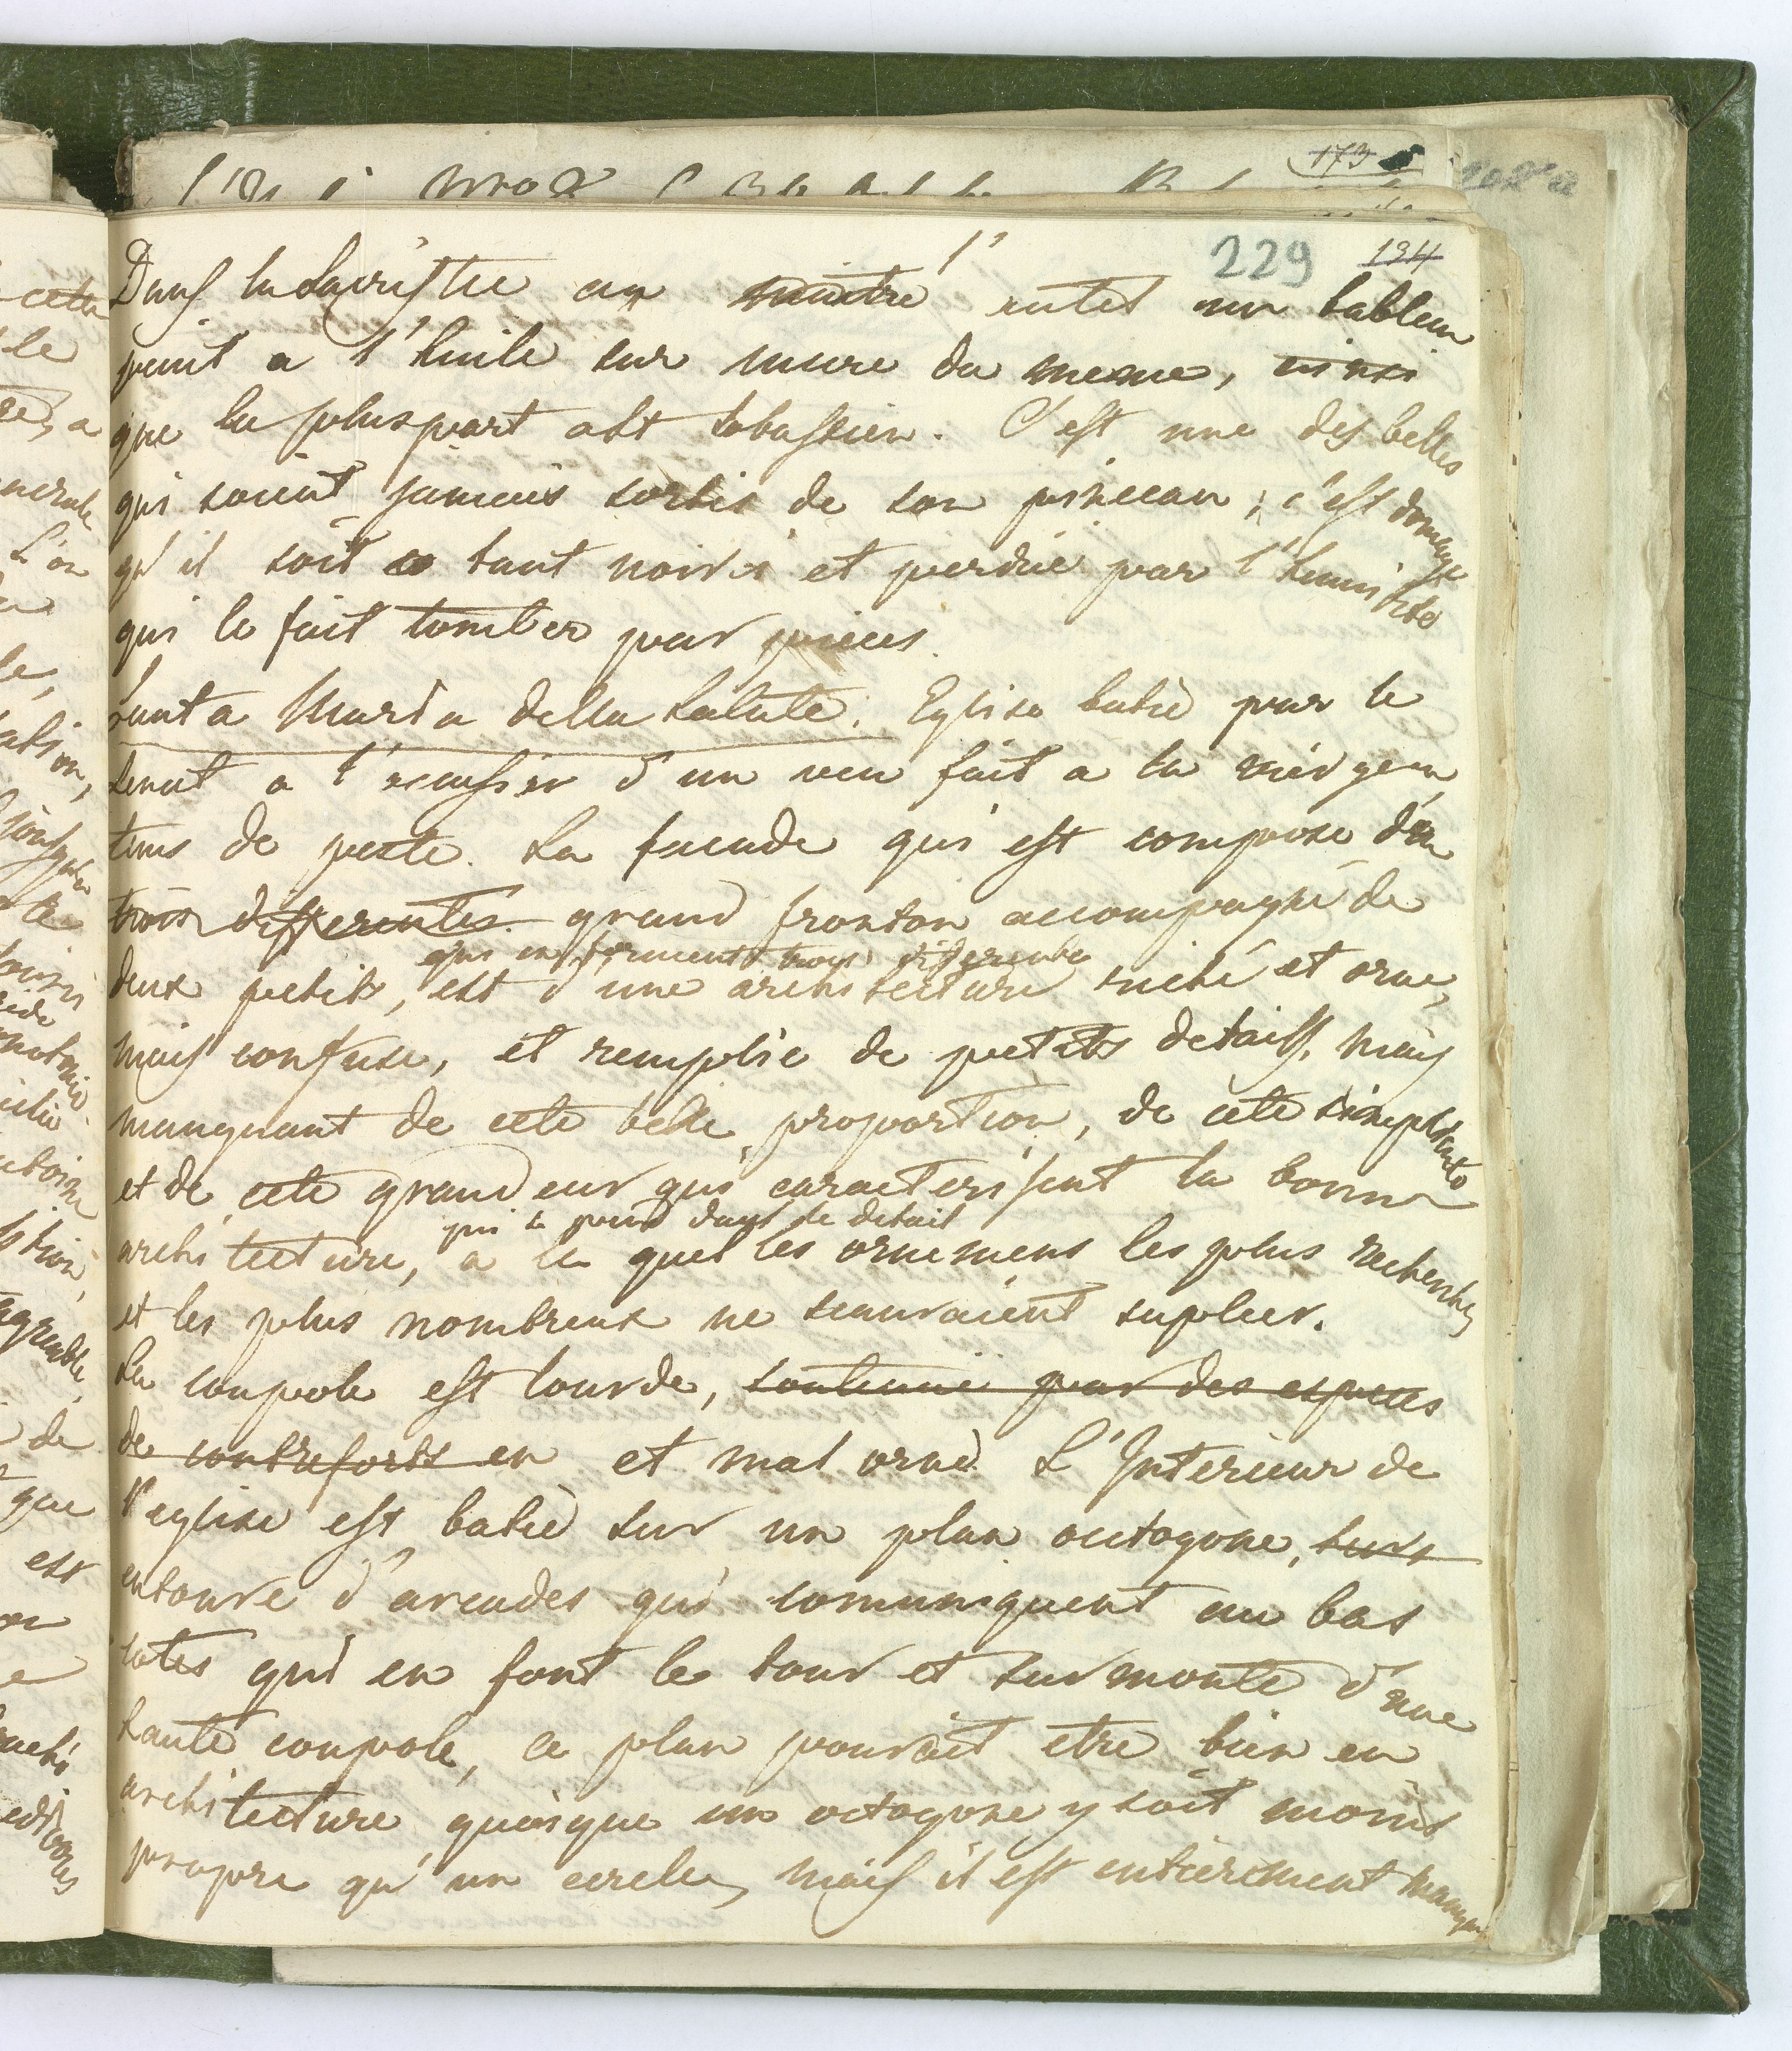 173
229 134
Dans la Sacristie au maitre autel un tableau
peint a l'huile sur mure du mesme, ainsi
que la pluspart a St Sebastien. C'est une des belles
qui soient jamais sortis de son pinceau ; c'est domage
qu'il soit tant noirci et perdue par l'humidité
qui le fait tomber par pieces.
Santa Maria della Salute. Eglise batie par le
Senat a l'occassion d'un veu fait a la vierge en
tems de peste. La facade qui est compose d'un
trois differentes grand fronton accompagné de
qui en forment trois differentes
deux petits, est d'une architecture riche et orne,
mais confuse, et remplie de petits details, mais
manquant de cete belle proportion, de cete simplicité
et de cete grandeur qui caracterisent la bonne
qui se perd dans le detail
architecture, a la quel les ornemens les plus recherchés
et les plus nombreux ne scauraient supleer.
La coupole est lourde, soutenue par des especes
de contreforts en et mal orné. L'Interieur de
l'eglise est batie sur un plan octogone, sur
entoure d'arcades qui comuniquent au bas
cotes qui en font le tour et surmonte d'une
haute coupole, ce plan pourait etre bien en
architecture, quoique un octogone y soit moins
propre qu'un cercle, mais il est entierement manqué